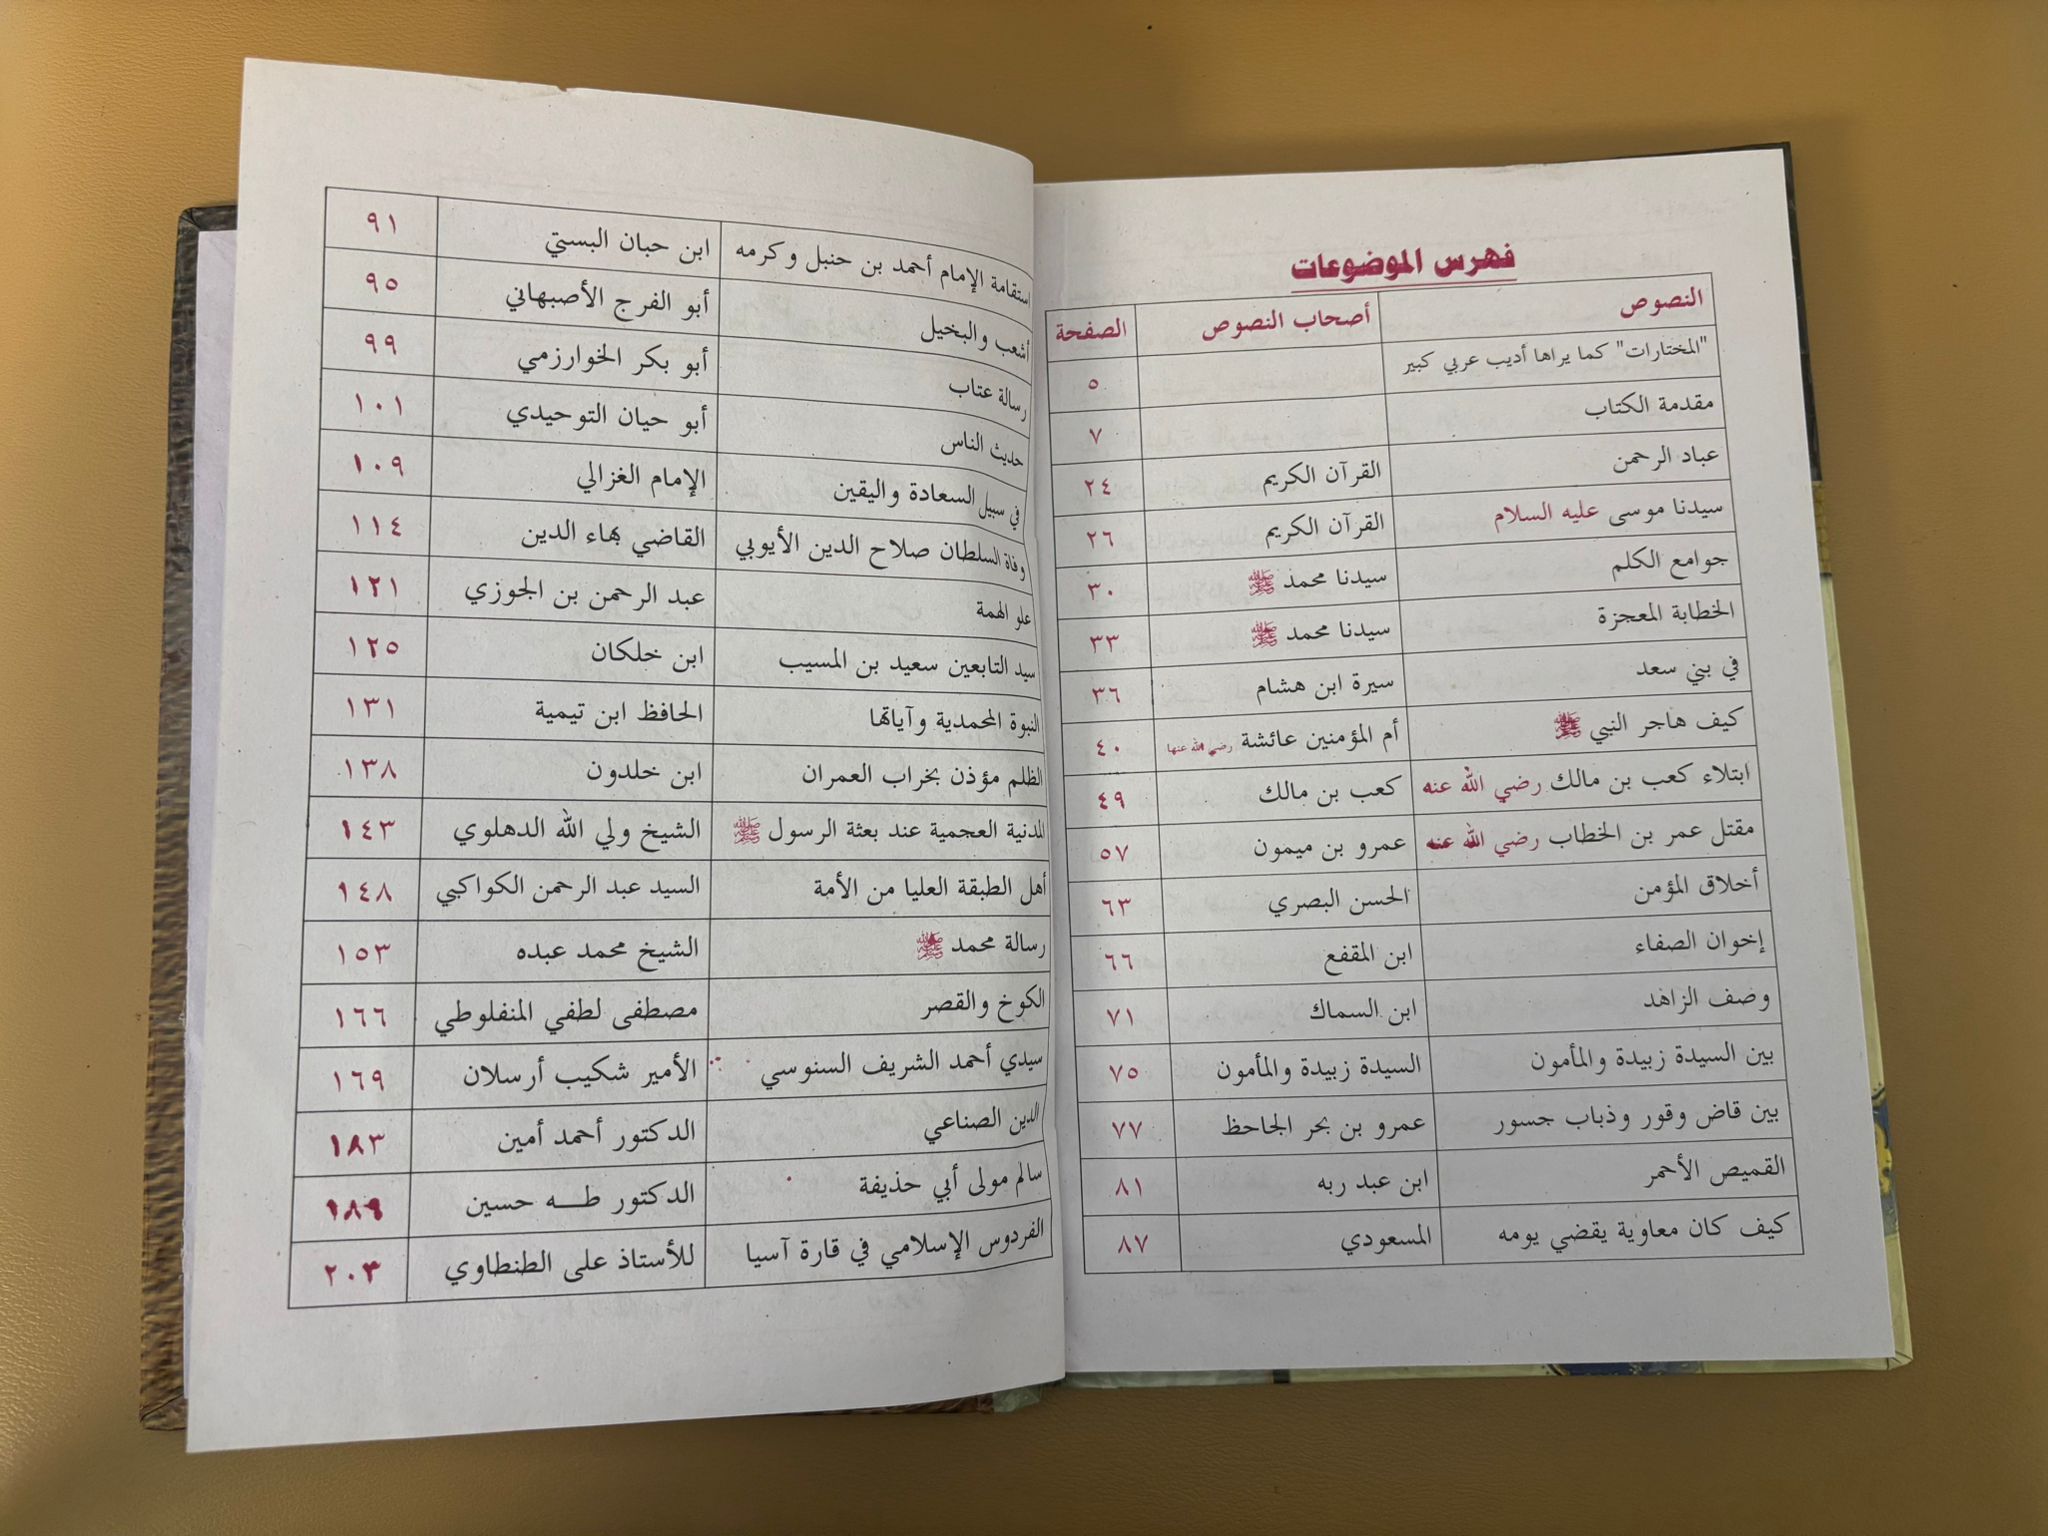 فهرس الموضوعات
النصوص أصحاب النصوص الصفحة
"المختارات" كما يراها أديب عربي كبير ٥
مقدمة الكتاب ٧
عباد الرحمن القرآن الكريم ٢٤
سيدنا موسى عليه السلام القرآن الكريم ٢٦
جوامع الكلم سيدنا محمد ﷺ ٣٠
الخطابة المعجزة سيدنا محمد ﷺ ٣٣
في بني سعد سيرة ابن هشام ٣٦
كيف هاجر النبي ﷺ أم المؤمنين عائشة رضي الله عنها ٤٠
ابتلاء كعب بن مالك رضي الله عنه كعب بن مالك ٤٩
مقتل عمر بن الخطاب رضي الله عنه عمرو بن ميمون ٥٧
أخلاق المؤمن الحسن البصري ٦٣
إخوان الصفاء ابن المقفع ٦٦
وصف الزاهد ابن السماك ٧١
بين السيدة زبيدة والمأمون السيدة زبيدة والمأمون ٧٥
بين قاض وقور وذباب جسور عمرو بن بحر الجاحظ ٧٧
القميص الأحمر ابن عبد ربه ٨١
كيف كان معاوية يقضي يومه المسعودي ٨٧
استقامة الإمام أحمد بن حنبل وكرمه ابن حبان البستي ٩١
أشعب والبخيل أبو الفرج الأصبهاني ٩٥
رسالة عتاب أبو بكر الخوارزمي ٩٩
حديث الناس أبو حيان التوحيدي ١٠١
في سبيل السعادة واليقين الإمام الغزالي ١٠٩
وفاة السلطان صلاح الدين الأيوبي القاضي بهاء الدين ١١٤
علو الهمة عبد الرحمن بن الجوزي ١٢١
سيد التابعين سعيد بن المسيب ابن خلكان ١٢٥
النبوة المحمدية وآياتها الحافظ ابن تيمية ١٣١
الظلم مؤذن بخراب العمران ابن خلدون ١٣٨
المدنية العجمية عند بعثة الرسول ﷺ الشيخ ولي الله الدهلوي ١٤٣
أهل الطبقة العليا من الأمة السيد عبد الرحمن الكواكبي ١٤٨
رسالة محمد ﷺ الشيخ محمد عبده ١٥٣
الكوخ والقصر مصطفى لطفي المنفلوطي ١٦٦
سيدي أحمد الشريف السنوسي الأمير شكيب أرسلان ١٦٩
الدين الصناعي الدكتور أحمد أمين ١٨٣
سالم مولى أبي حذيفة الدكتور طـه حسين ١٨٩
الفردوس الإسلامي في قارة آسيا للأستاذ على الطنطاوي ٢٠٣